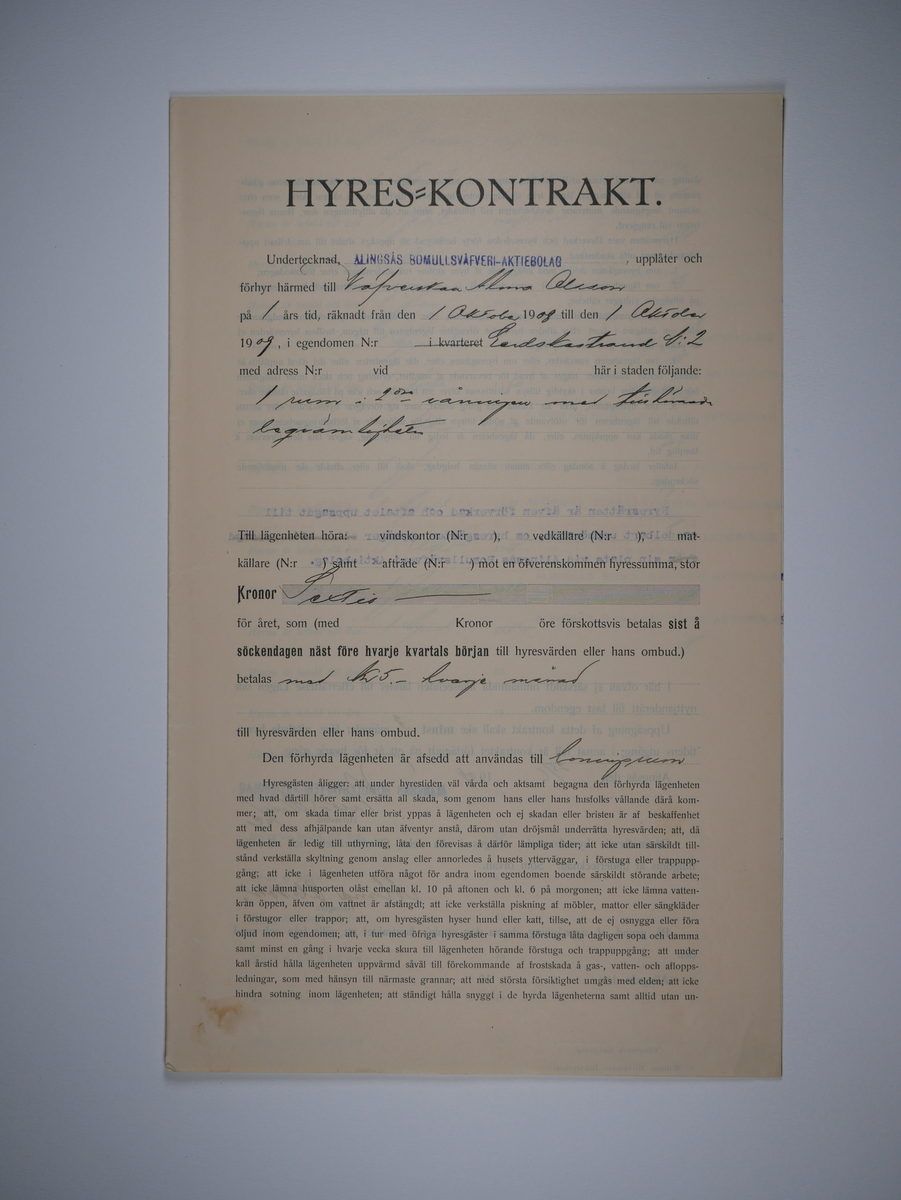 HYRES=KONTRAKT.
Undertecknad, ALINGSÅS BOMULLSVÄFVERI-AKTIEBOLAG , upplåter och
förhyr härmed till Väfverskan Alma Olsson
på 1 års tid, räknadt från den 1 Oktober 1908 till den 1 Oktober
1909, i egendomen N:r i kvarteret N:2
med adress N:r vid här i staden följande:
1 rum i 2dra våningen med tillhörande
beqvämligheter
Till lägenheten höra: vindskontor (N:r ), vedkällare (N:r ), mat-
källare (N:r ) samt afträde (N:r ) mot en öfverenskommen hyressumma, stor
Kronor Sextio
för året, som (med Kronor öre förskottsvis betalas sist å
söckendagen näst före hvarje kvartals början till hyresvärden eller hans ombud.)
betalas med Kr 5.- hvarje månad
till hyresvärden eller hans ombud.
Den förhyrda lägenheten är afsedd att användas till boningsrum
Hyresgästen åligger: att under hyrestiden väl vårda och aktsamt begagna den förhyrda lägenheten
med hvad därtill hörer samt ersätta all skada, som genom hans eller hans husfolks vållande därå kom-
mer; att, om skada timar eller brist yppas å lägenheten och ej skadan eller bristen är af beskaffenhet
att med dess afhjälpande kan utan äfventyr anstå, därom utan dröjsmål underrätta hyresvärden; att, då
lägenheten är ledig till uthyrning, låta den förevisas å därför lämpliga tider; att icke utan särskildt till-
stånd verkställa skyltning genom anslag eller annorledes å husets ytterväggar, i förstuga eller trappupp-
gång; att icke i lägenheten utföra något för andra inom egendomen boende särskildt störande arbete;
att icke lämna husporten olåst emellan kl. 10 på aftonen och kl. 6 på morgonen; att icke lämna vatten-
kran öppen, äfven om vattnet är afstängdt; att icke verkställa piskning af möbler, mattor eller sängkläder
i förstugor eller trappor; att, om hyresgästen hyser hund eller katt, tillse, att de ej osnygga eller föra
oljud inom egendomen; att, i tur med öfriga hyresgäster i samma förstuga låta dagligen sopa och damma
samt minst en gång i hvarje vecka skura till lägenheten hörande förstuga och trappuppgång; att under
kall årstid hålla lägenheten uppvärmd såväl till förekommande af frostskada å gas-, vatten- och aflopps-
ledningar, som med hänsyn till närmaste grannar; att med största försiktighet umgås med elden; att icke
hindra sotning inom lägenheten; att ständigt hålla snyggt i de hyrda lägenheterna samt alltid utan un-